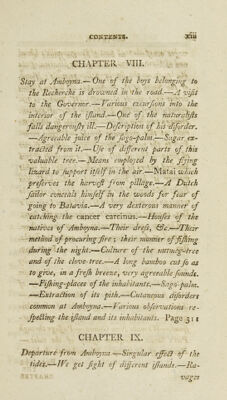 CONTENTS. xiii
CHAPTER VIII.
Stay at Amboyna.—One of the boys belonging to
the Recherche is drowned in the road.—A visit
to the Governor.—Various excursions into the
interior of the island.—One of the naturalists
falls dangerously ill.—Description of his disorder.
—Agreeable juice of the sago-palm.—Sugar ex-
tracted from it.—Use of different parts of this
valuable tree.—Means employed by the flying
lizard to support itself in the air.—Matai which
preserves the harvest from pillage.—A Dutch
sailor conceals himself in the woods for fear of
going to Batavia.—A very dexterous manner of
catching the cancer carcinus.—Houses of the
natives of Amboyna.—Their dress, &c.—Their
method of procuring fire; their manner of fishing
during the night.—Culture of the nutmeg-tree
and of the clove-tree.—A long bamboo cut so as
to give, in a fresh breeze, very agreeable sounds.
—Fishing-places of the inhabitants.—Sago-palm.
—Extraction of its pith.—Cutaneous disorders
common at Amboyna.—Various observations re-
specting the island and its inhabitants. Page 311
CHAPTER IX.
Departure from Amboyna—Singular effect of the
tides.—We get sight of different islands.—Ra-
vages